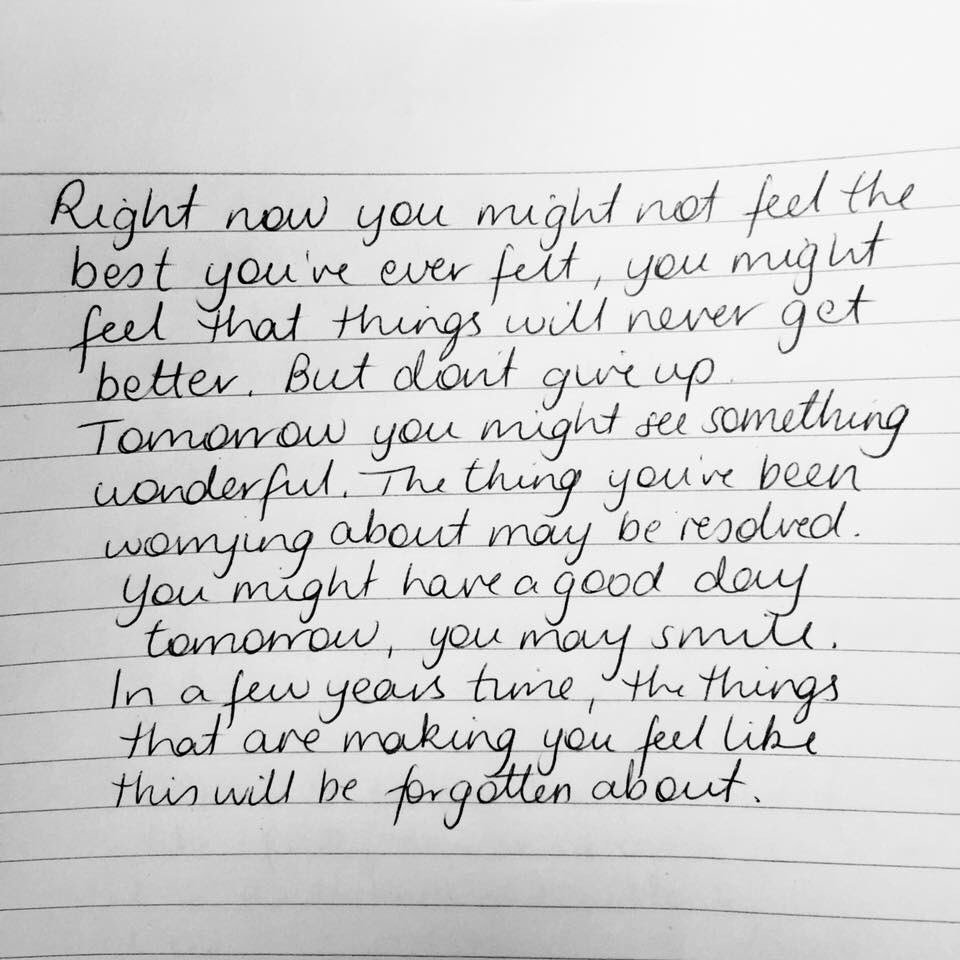 Right now you might not feel the
best you've ever felt, you might
feel that things will never get
better. But don't give up.
Tomorrow you might see something
wonderful. The thing you've been
worrying about may be resolved.
You might have a good day
tomorrow, you may smile.
In a few years time, the things
that are making you feel like
this will be forgotten about.